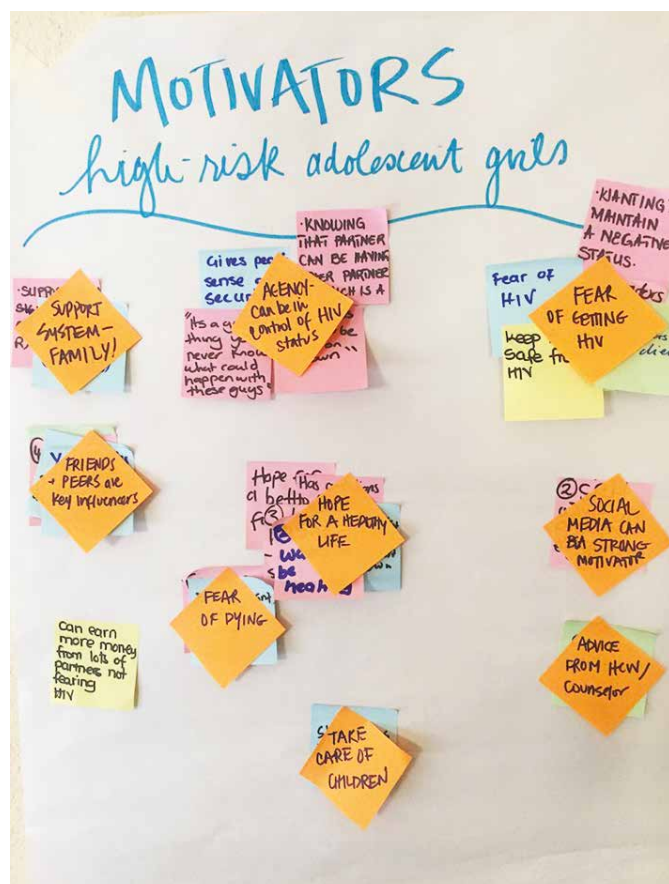 MOTIVATORS
high-risk adolescent girls
SUPPORT
SYSTEM-
FAMILY!
Gives
sense
AGENCY-
can be in
control of HIV
status
·KNOWING
THAT PARTNER
CAN BE HAVING
PARTNER
IS A
"Its a
thing you
never know
what could
happen with
these guys"
·WANTING
MAINTAIN
A NEGATIVE
STATUS.
Fear of
HIV
FEAR
OF GETTING
HIV
keep
safe
HIV
FRIENDS
+ PEERS are
key influencers
Hope
a
Has
HOPE
FOR A HEALTHY
LIFE
be
②
SOCIAL
MEDIA CAN
BE A STRONG
MOTIVATOR
FEAR
OF DYING
can earn
more money
from lots of
partners not
fearing
HIV
ADVICE
FROM HCW/
Counselor
TAKE
CARE OF
CHILDREN